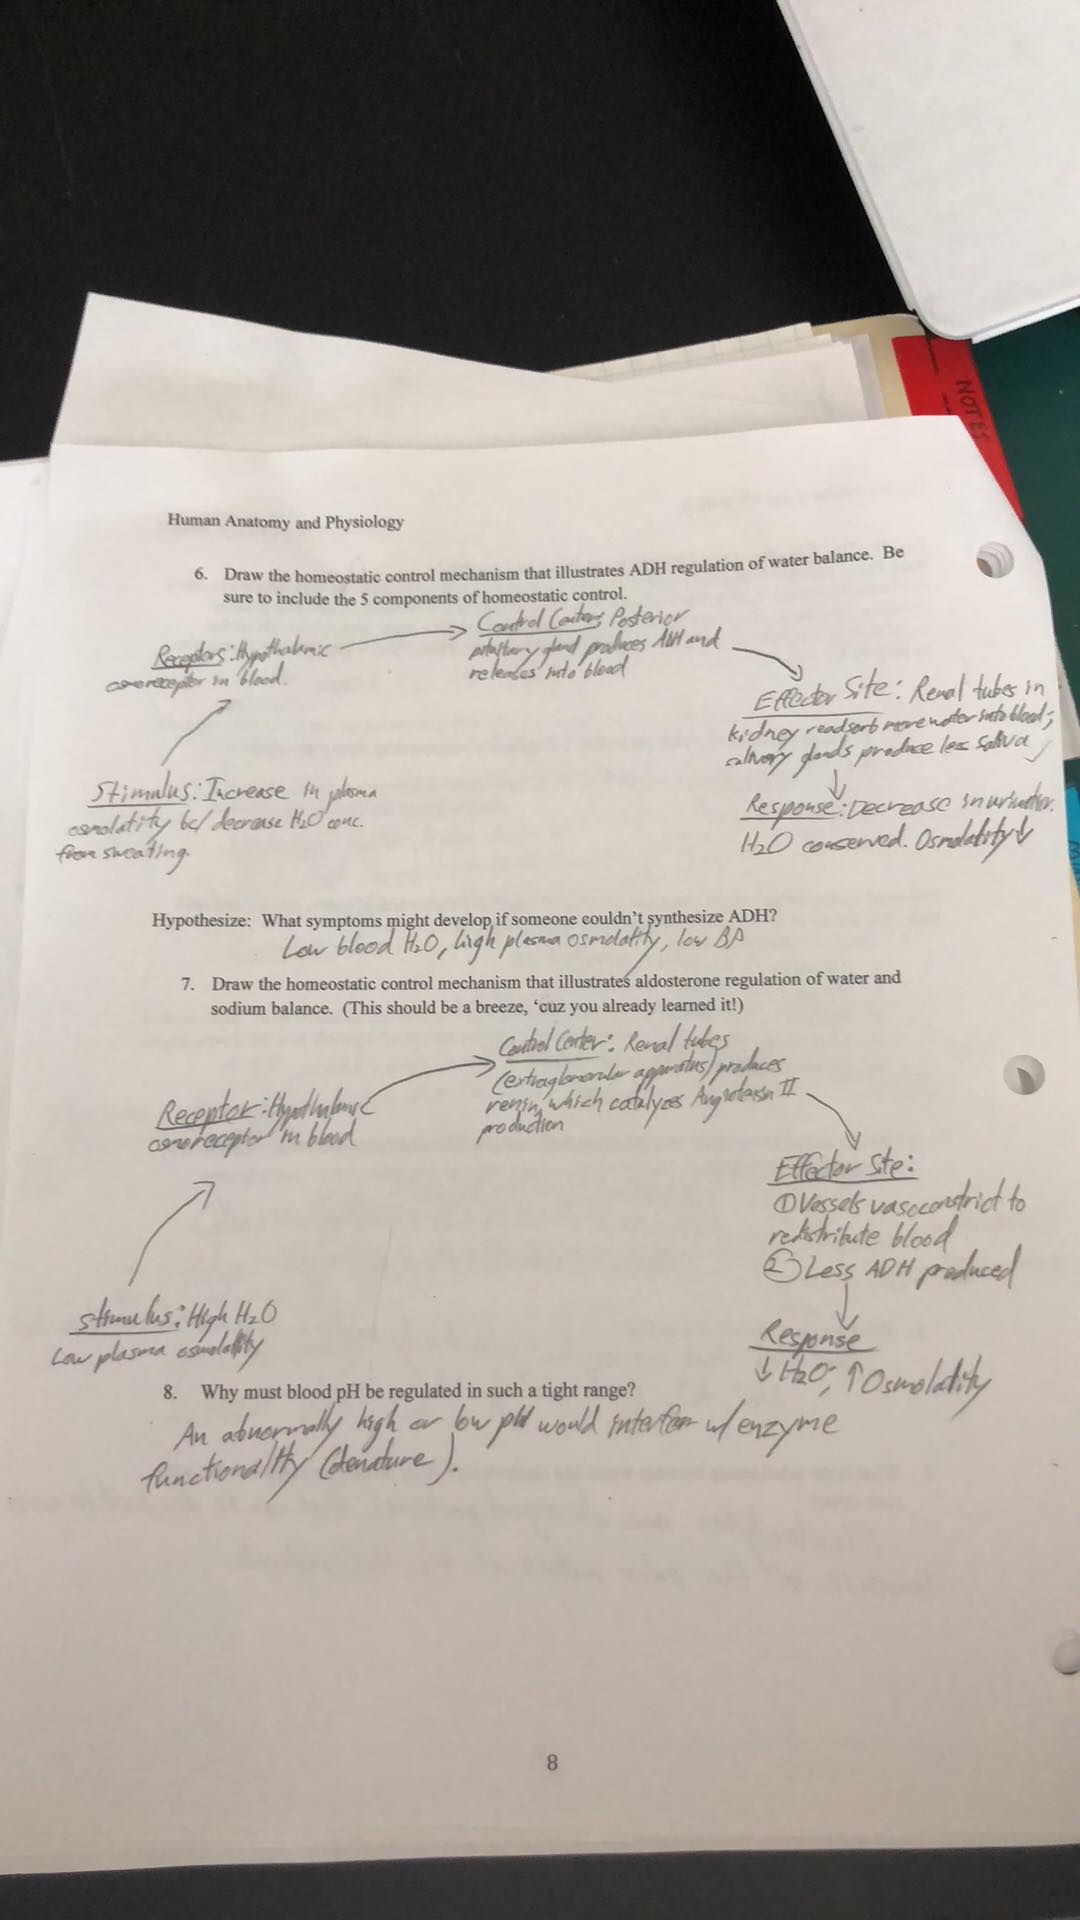 NOTES
Human Anatomy and Physiology
6. Draw the homeostatic control mechanism that illustrates ADH regulation of water balance. Be
sure to include the 5 components of homeostatic control.
Receptors: Hypothalamic
osmoreceptor in blood.
Control Center: Posterior
pituitary gland produces ADH and
releases into blood
Effector Site: Renal tubes in
kidney readsorb more water into blood;
salivary glands produce less saliva
Stimulus: Increase in plasma
osmolatity bc/ decrease H2O conc.
from sweating.
Response: Decrease in
H2O conserved. Osmolatity ↓
Hypothesize: What symptoms might develop if someone couldn't synthesize ADH?
Low blood H2O, high plasma osmolatity, low BP
7. Draw the homeostatic control mechanism that illustrates aldosterone regulation of water and
sodium balance. (This should be a breeze, 'cuz you already learned it!)
Receptor: Hypothalamic
osmoreceptor in blood
Control Center: Renal tubes
(extraglomerular apparatus) produces
renin, which catalyzes Angiotensin II
production
Effector Site:
① Vessels vasoconstrict to
redistribute blood
② Less ADH produced
Stimulus: High H2O
Low plasma osmolatity
Response
↓ H2O; ↑ Osmolatity
8. Why must blood pH be regulated in such a tight range?
An abnormally high or low pH would interfere w/ enzyme
functionality (denature).
8